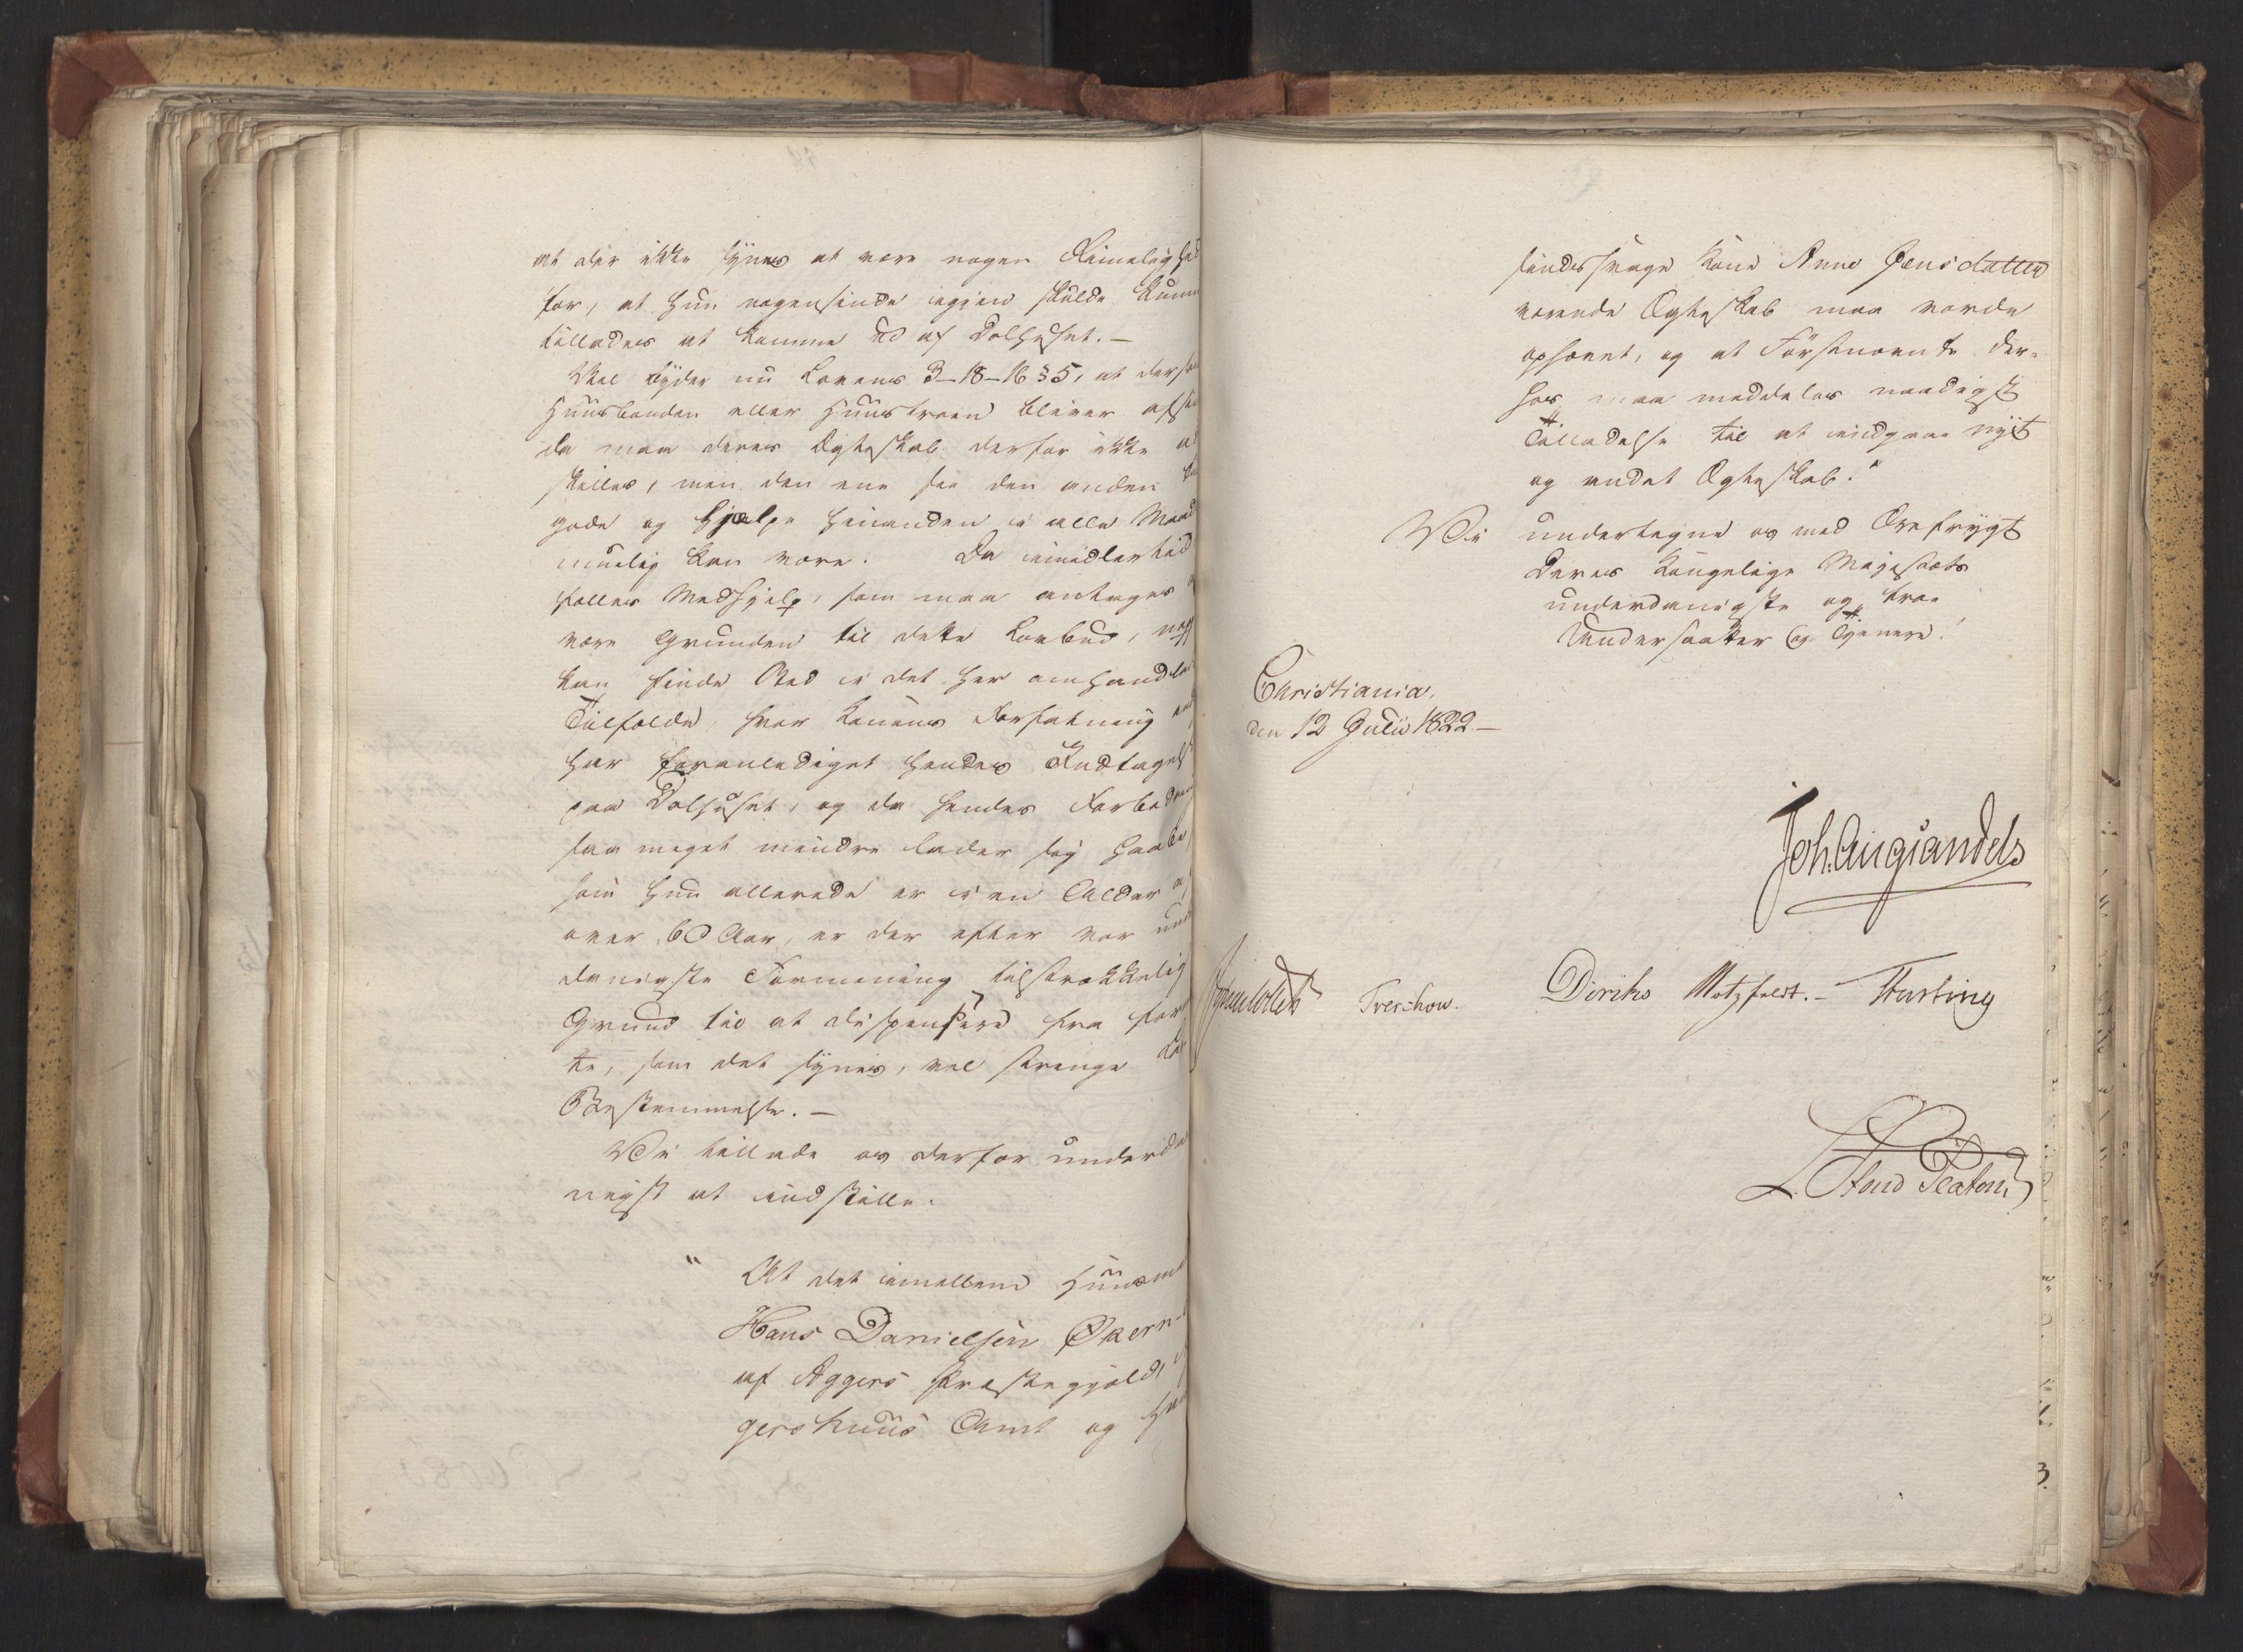 at der ikke synes at være nogen Rimelighed
for, at hun nogensinde igjen skulde kunne
tillades at komme ud af Dolhuset. —
Vel byder nu Lovens 3-18-16 § 5, at dersom
Huusbonden eller Huustroen bliver afsin
da maa deres Ægteskab derfor ikke ad
skilles, men den ene see den anden til
gode og hjælpe hinanden i alle Maader
muelig kan være. Da imidlertid
fælles Medhjelp, som maa antages at
være Grunden til dette Lovbud, neppe
kan finde Sted i det her omhandlede
Tilfælde, hvor Konens Forfatning
har foranlediget hendes Indtagelse
paa Dolhuset, og da hendes Forbedring
saa meget mindre lader sig haabe,
som hun allerede er i en Alder af
over 60 Aar, er der efter vor under
danigste Formening tilstrækkelig
Grund til at dispensere fra for
te, som det synes, vel strenge Lov
Bestemmelse. —
Vi tillade os derfor underda
nigst at indstille:
" At det imellem Huusmand
Hans Danielsen Økern
af Aggers Præstegjeld,
gershuus Amt og hans
sindssvage Kone Anne Jensdatter
værende Ægteskab maa vorde
ophævet, og at Førstnævnte der-
hos maa meddeles naadigst
Tilladelse til at indgaae nyt
og andet Ægteskab."
Vi undertegne os med Ærefrygt
Deres Kongelige Majestæts
underdanigste og troe
Undersaatter og Tjenere!
Christiania,
den 12 Julii 1822 —
Joh. Aug Sandels
Sommerhielm Treschow. Diriks Motzfeldt. — Fasting
L. Stoud Platou